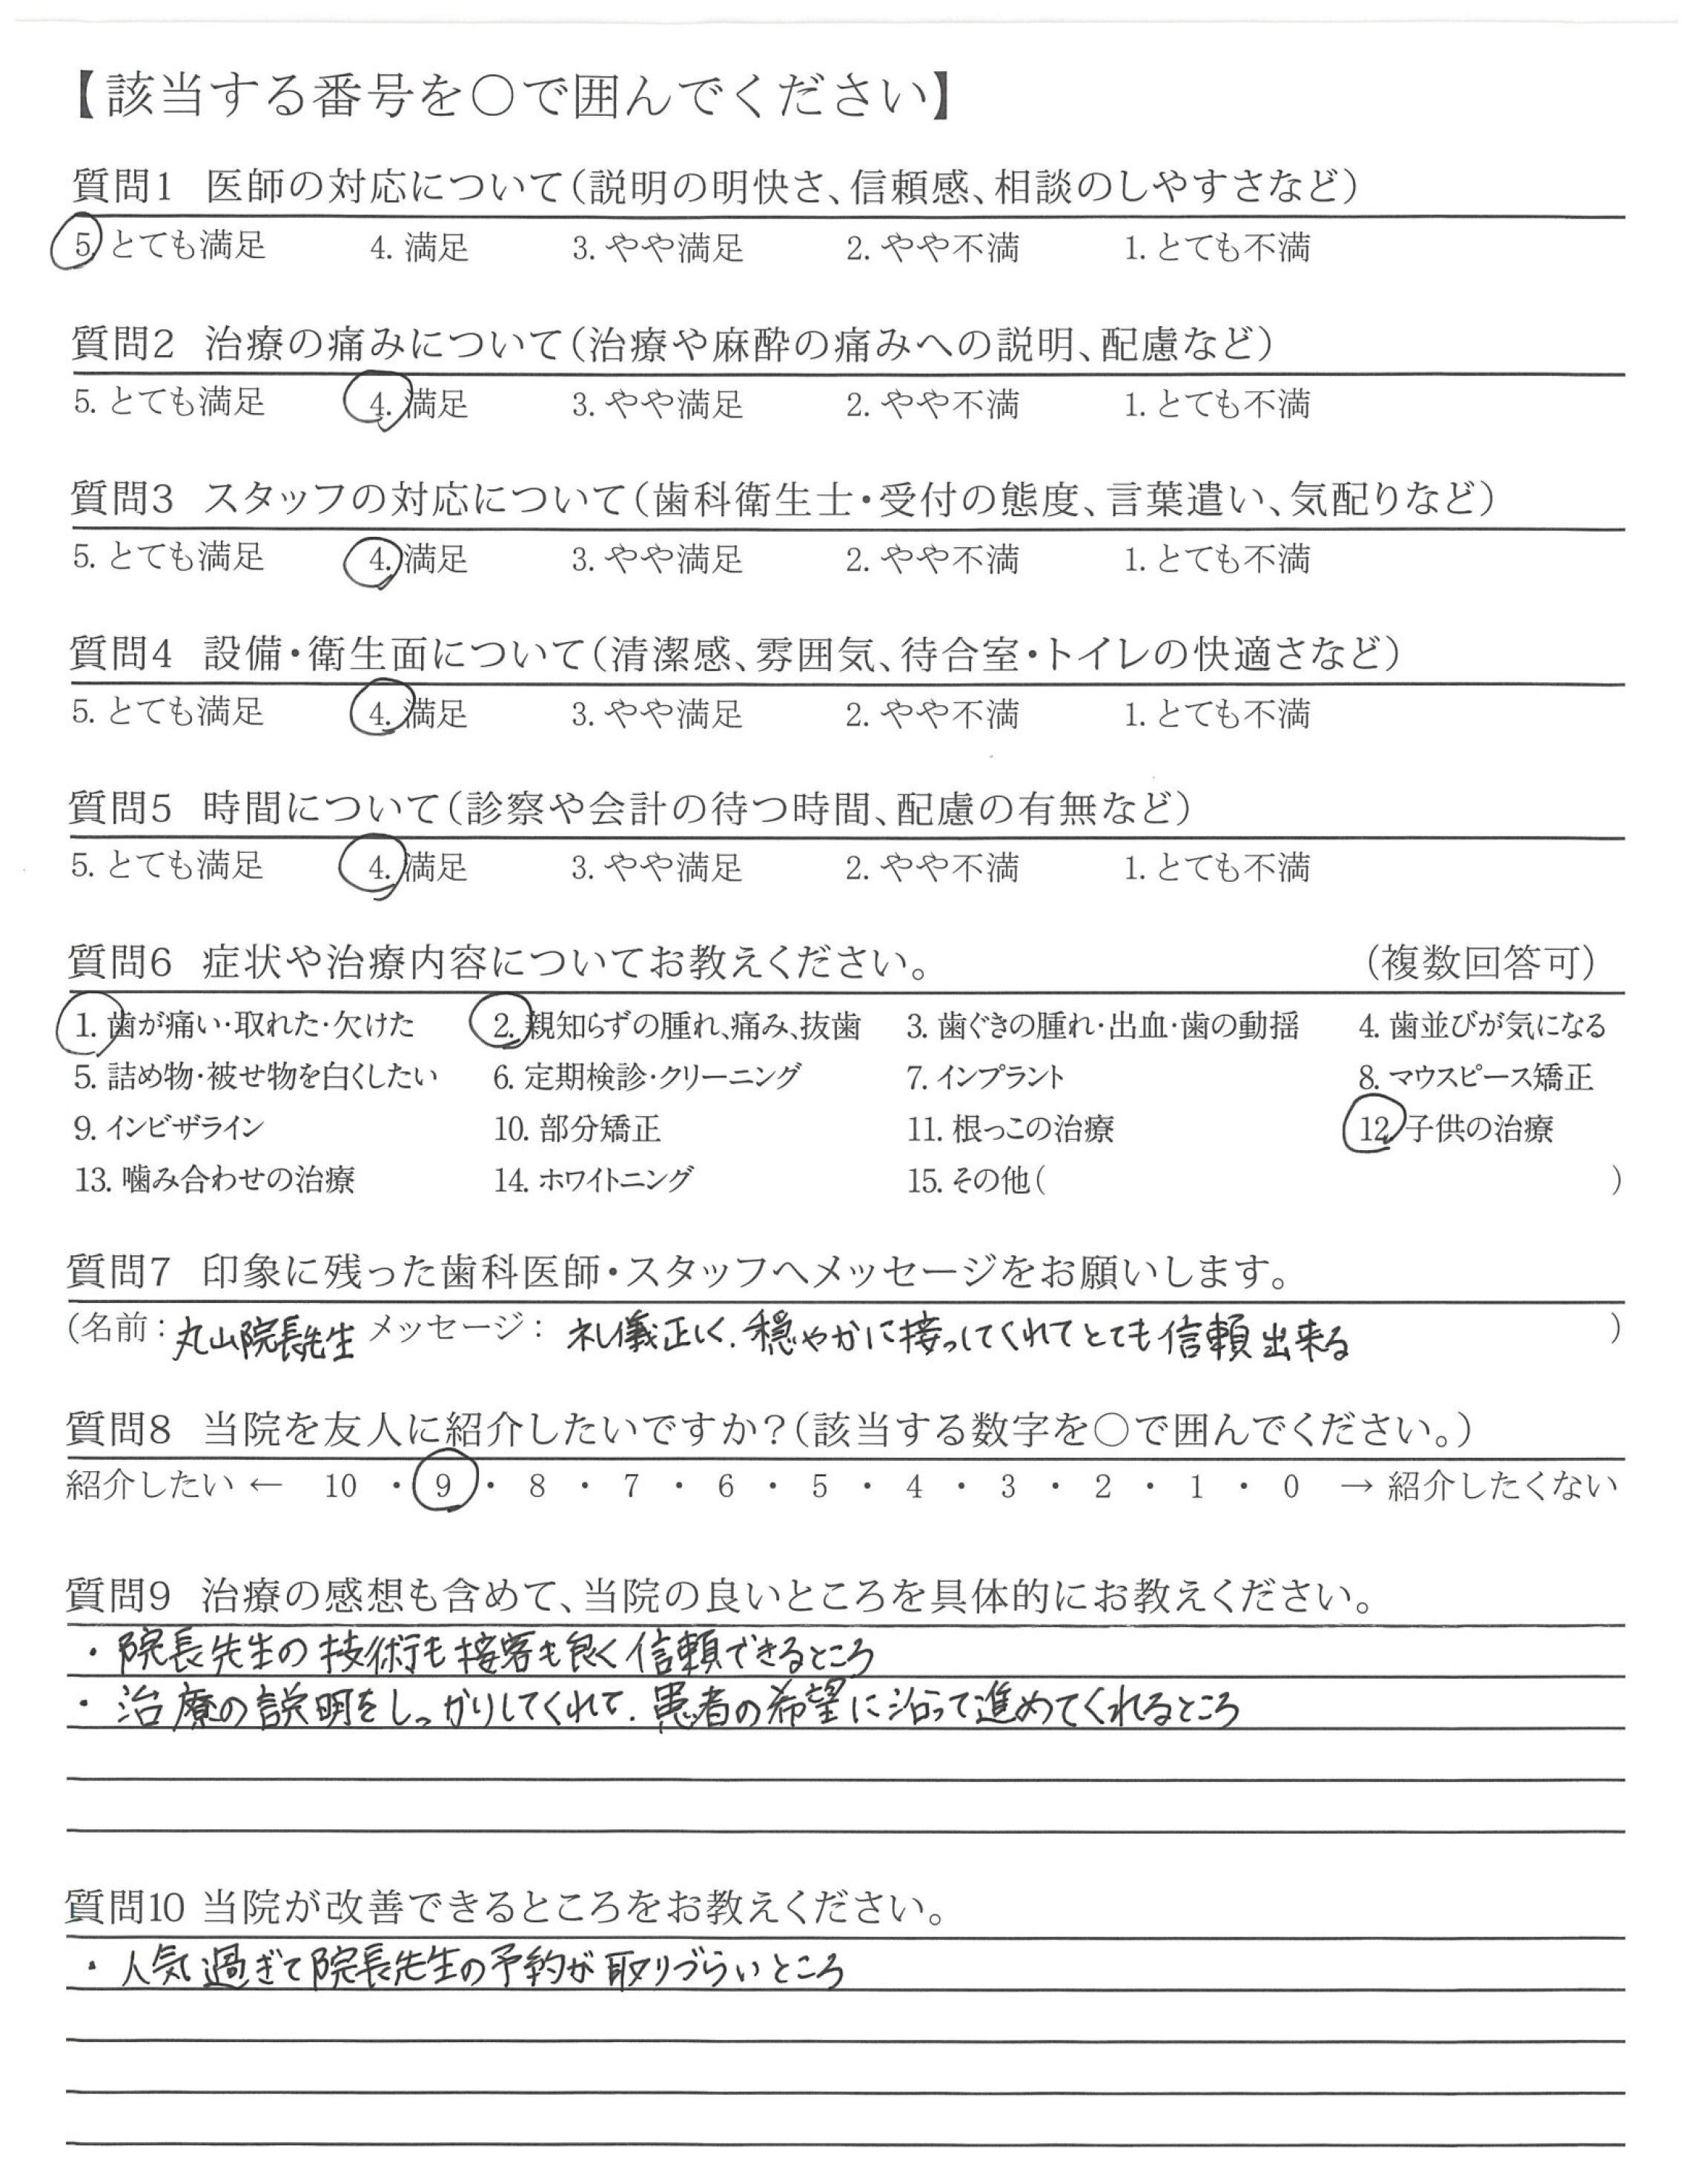 【該当する番号を〇で囲んでください】
質問1 医師の対応について（説明の明快さ、信頼感、相談のしやすさなど）
5. とても満足 4. 満足 3. やや満足 2. やや不満 1. とても不満
質問2 治療の痛みについて（治療や麻酔の痛みへの説明、配慮など）
5. とても満足 4. 満足 3. やや満足 2. やや不満 1. とても不満
質問3 スタッフの対応について（歯科衛生士・受付の態度、言葉遣い、気配りなど）
5. とても満足 4. 満足 3. やや満足 2. やや不満 1. とても不満
質問4 設備・衛生面について（清潔感、雰囲気、待合室・トイレの快適さなど）
5. とても満足 4. 満足 3. やや満足 2. やや不満 1. とても不満
質問5 時間について（診察や会計の待つ時間、配慮の有無など）
5. とても満足 4. 満足 3. やや満足 2. やや不満 1. とても不満
質問6 症状や治療内容についてお教えください。 （複数回答可）
1. 歯が痛い・取れた・欠けた 2. 親知らずの腫れ、痛み、抜歯 3. 歯ぐきの腫れ・出血・歯の動揺 4. 歯並びが気になる
5. 詰め物・被せ物を白くしたい 6. 定期検診・クリーニング 7. インプラント 8. マウスピース矯正
9. インビザライン 10. 部分矯正 11. 根っこの治療 12. 子供の治療
13. 噛み合わせの治療 14. ホワイトニング 15. その他（ ）
質問7 印象に残った歯科医師・スタッフへメッセージをお願いします。
（名前：丸山院長先生 メッセージ：礼儀正しく、穏やかに接ってくれてとても信頼出来る ）
質問8 当院を友人に紹介したいですか？（該当する数字を〇で囲んでください。）
紹介したい ← 10 ・ 9 ・ 8 ・ 7 ・ 6 ・ 5 ・ 4 ・ 3 ・ 2 ・ 1 ・ 0 → 紹介したくない
質問9 治療の感想も含めて、当院の良いところを具体的にお教えください。
・院長先生の技術も接客も良く信頼できるところ
・治療の説明をしっかりしてくれて、患者の希望に沿って進めてくれるところ
質問10 当院が改善できるところをお教えください。
・人気過ぎて院長先生の予約が取りづらいところ